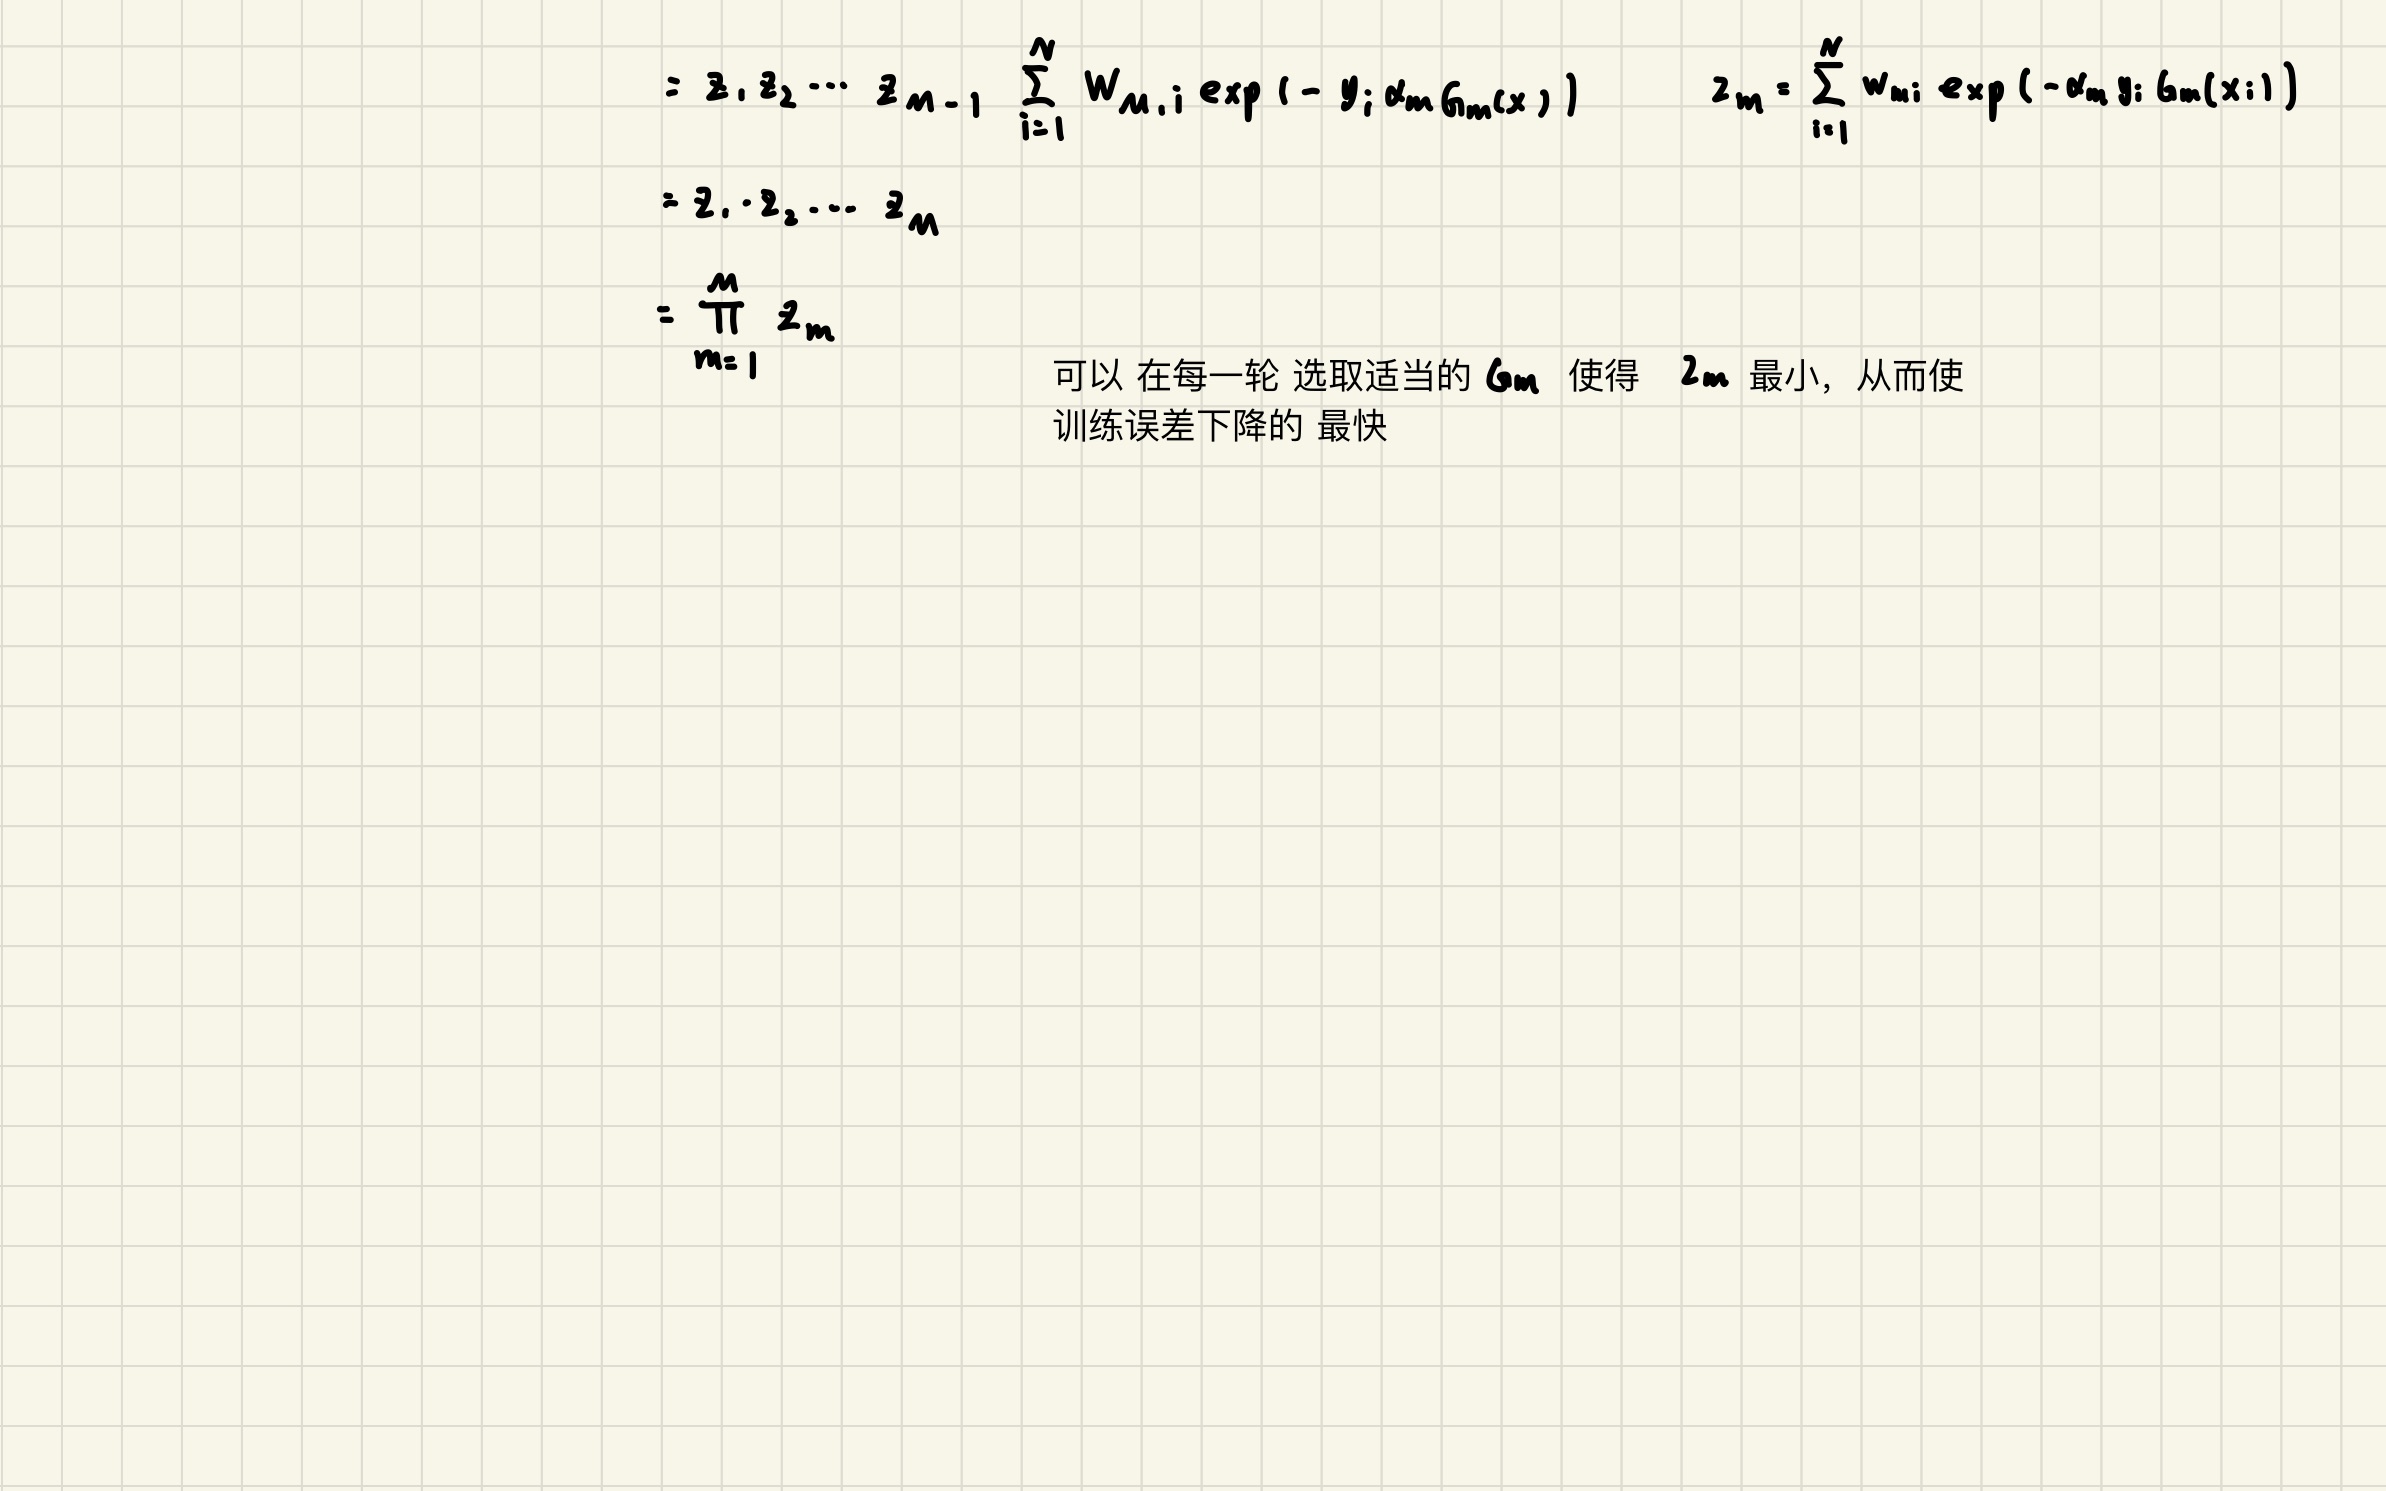 = z₁ z₂ ⋯ z_{M-1} \sum_{i=1}^{N} w_{M,i} exp(- y_i α_m G_m(x)) z_m = \sum_{i=1}^{N} w_{mi} exp(-α_m y_i G_m(x_i))
= z₁ · z₂ ⋯ z_M
= \prod_{m=1}^{M} z_m
可以 在每一轮 选取适当的 Gm 使得 zm 最小，从而使
训练误差下降的 最快